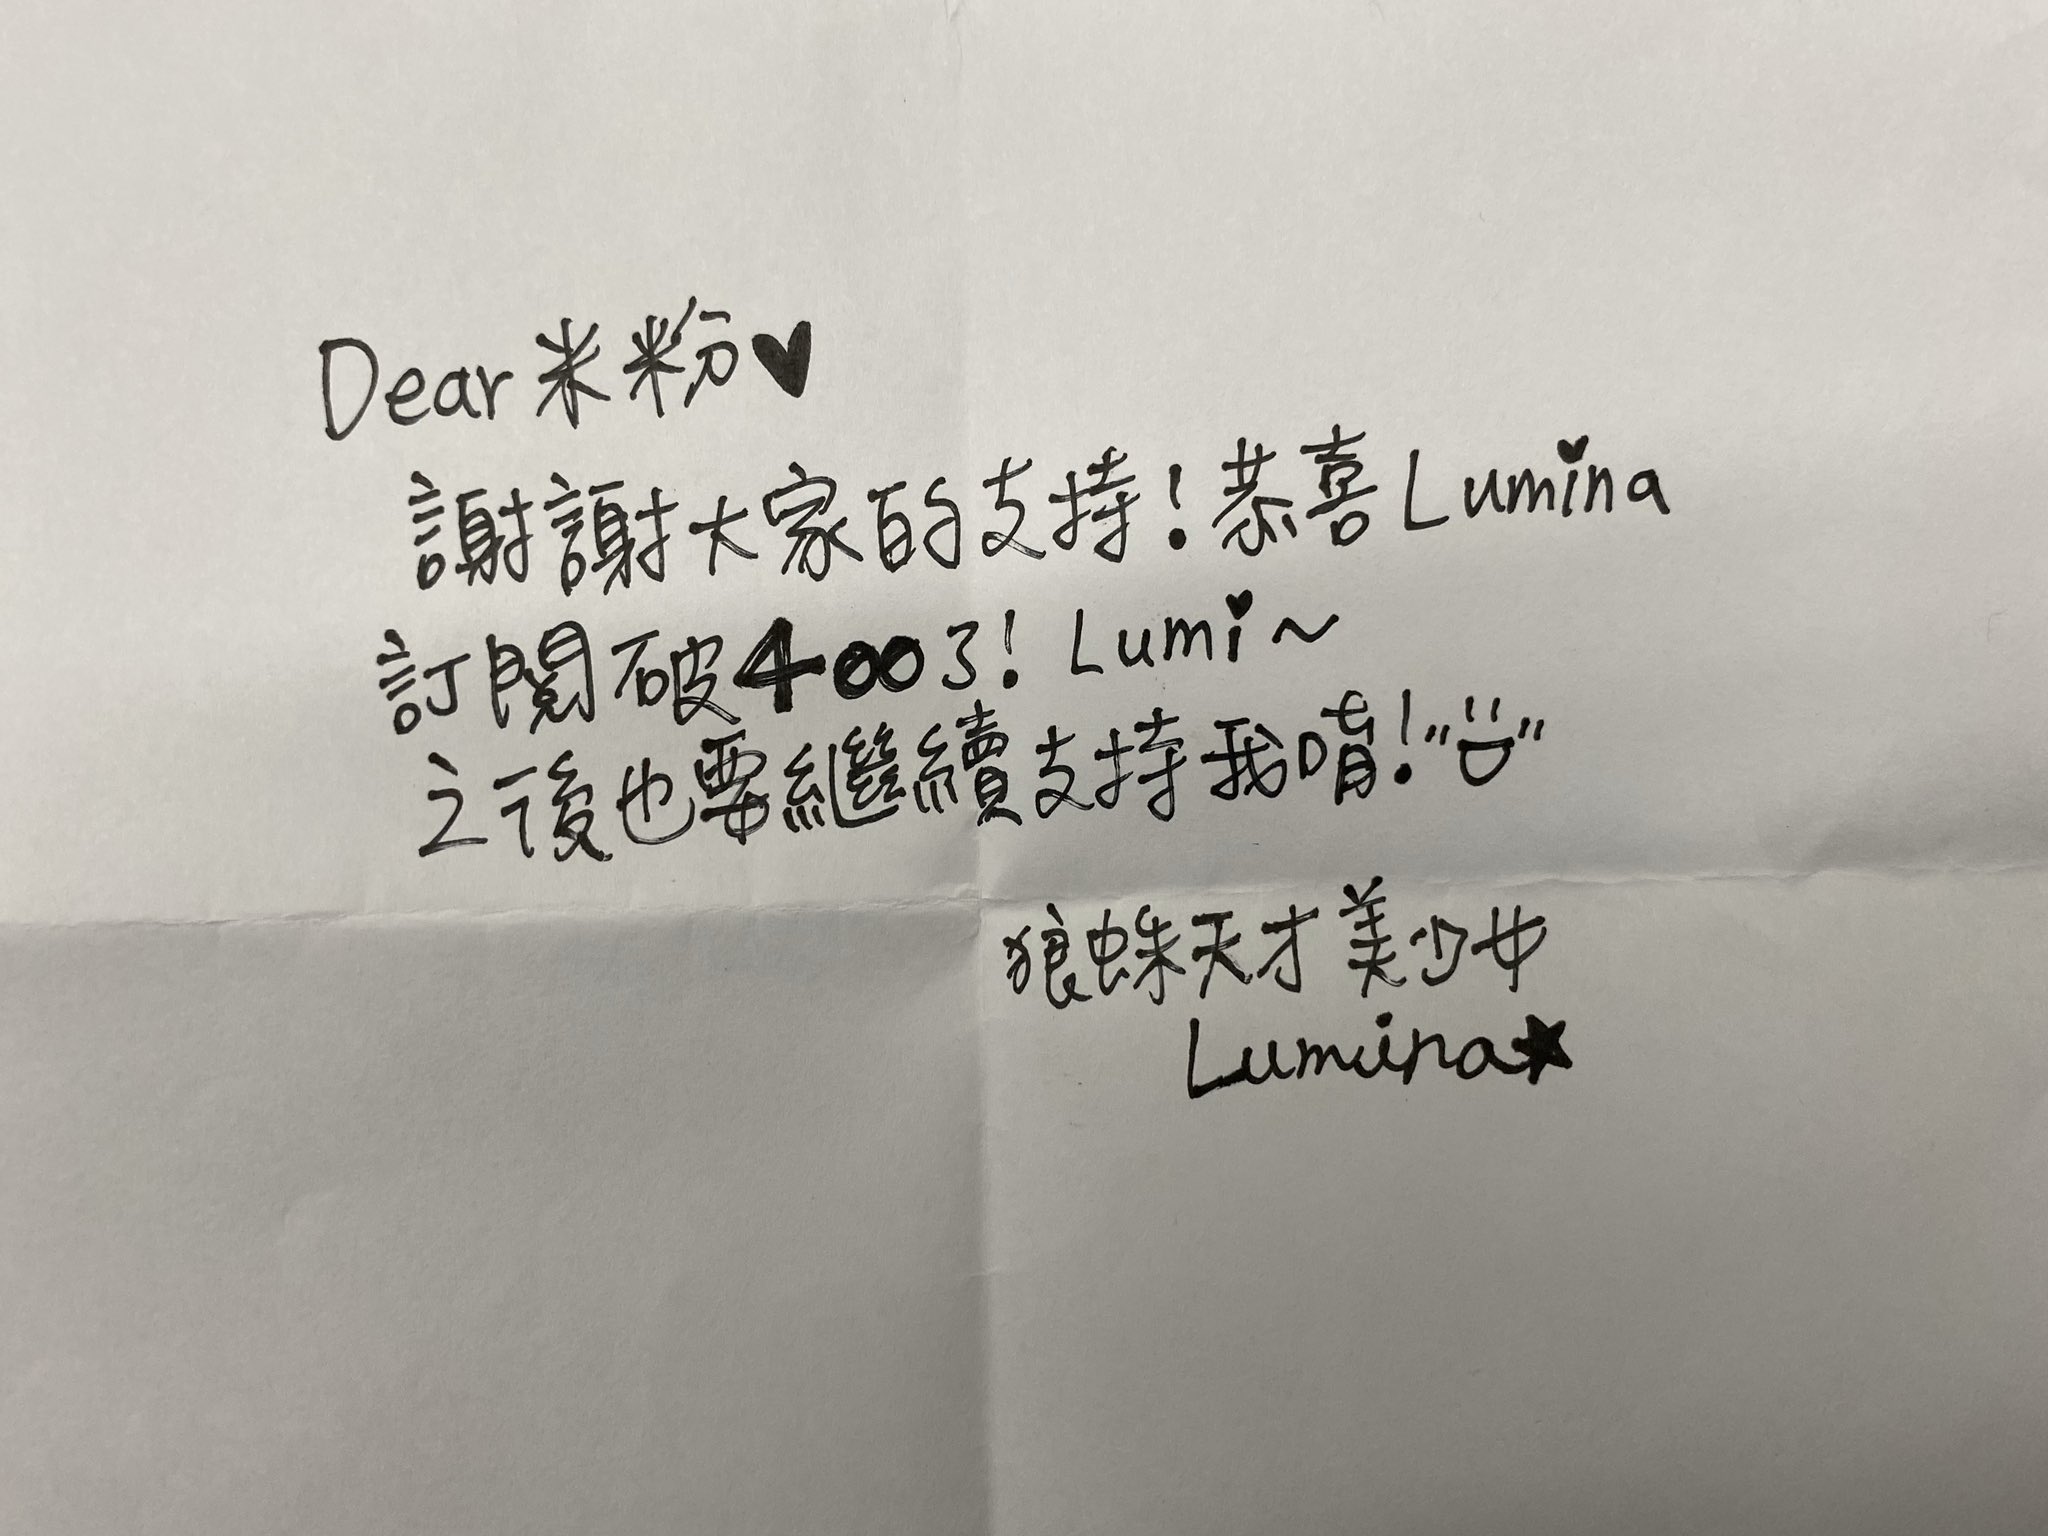 Dear 米粉♥
謝謝大家的支持！恭喜Lumina
訂閱破400了！Lumi～
之後也要繼續支持我唷！
狼蛛天才美少女
Lumina★